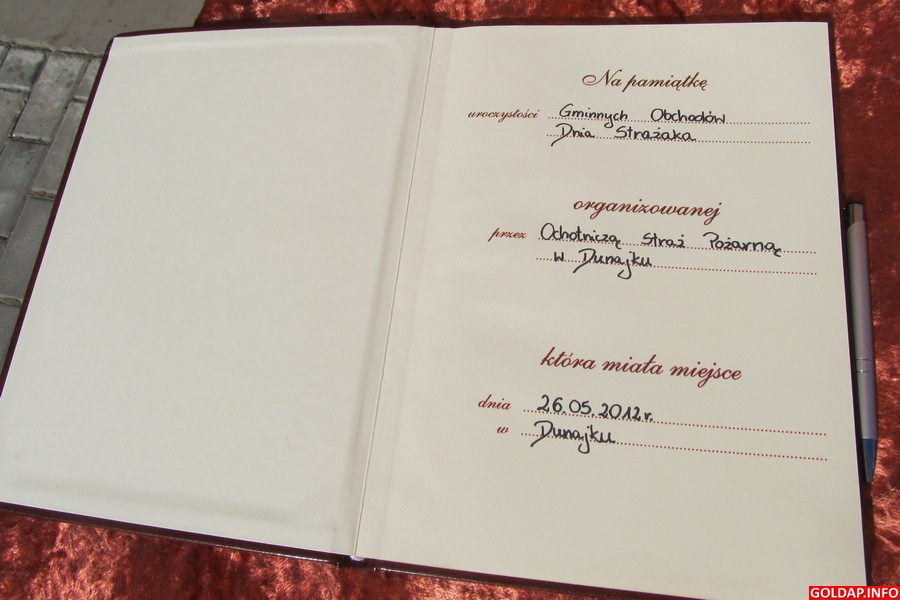 Na pamiątkę
uroczystości Gminnych Obchodów
Dnia Strażaka
organizowanej
przez Ochotniczą Straż Pożarną
w Dunajku
która miała miejsce
dnia 26.05.2012r.
w Dunajku
GOLDAP.INFO